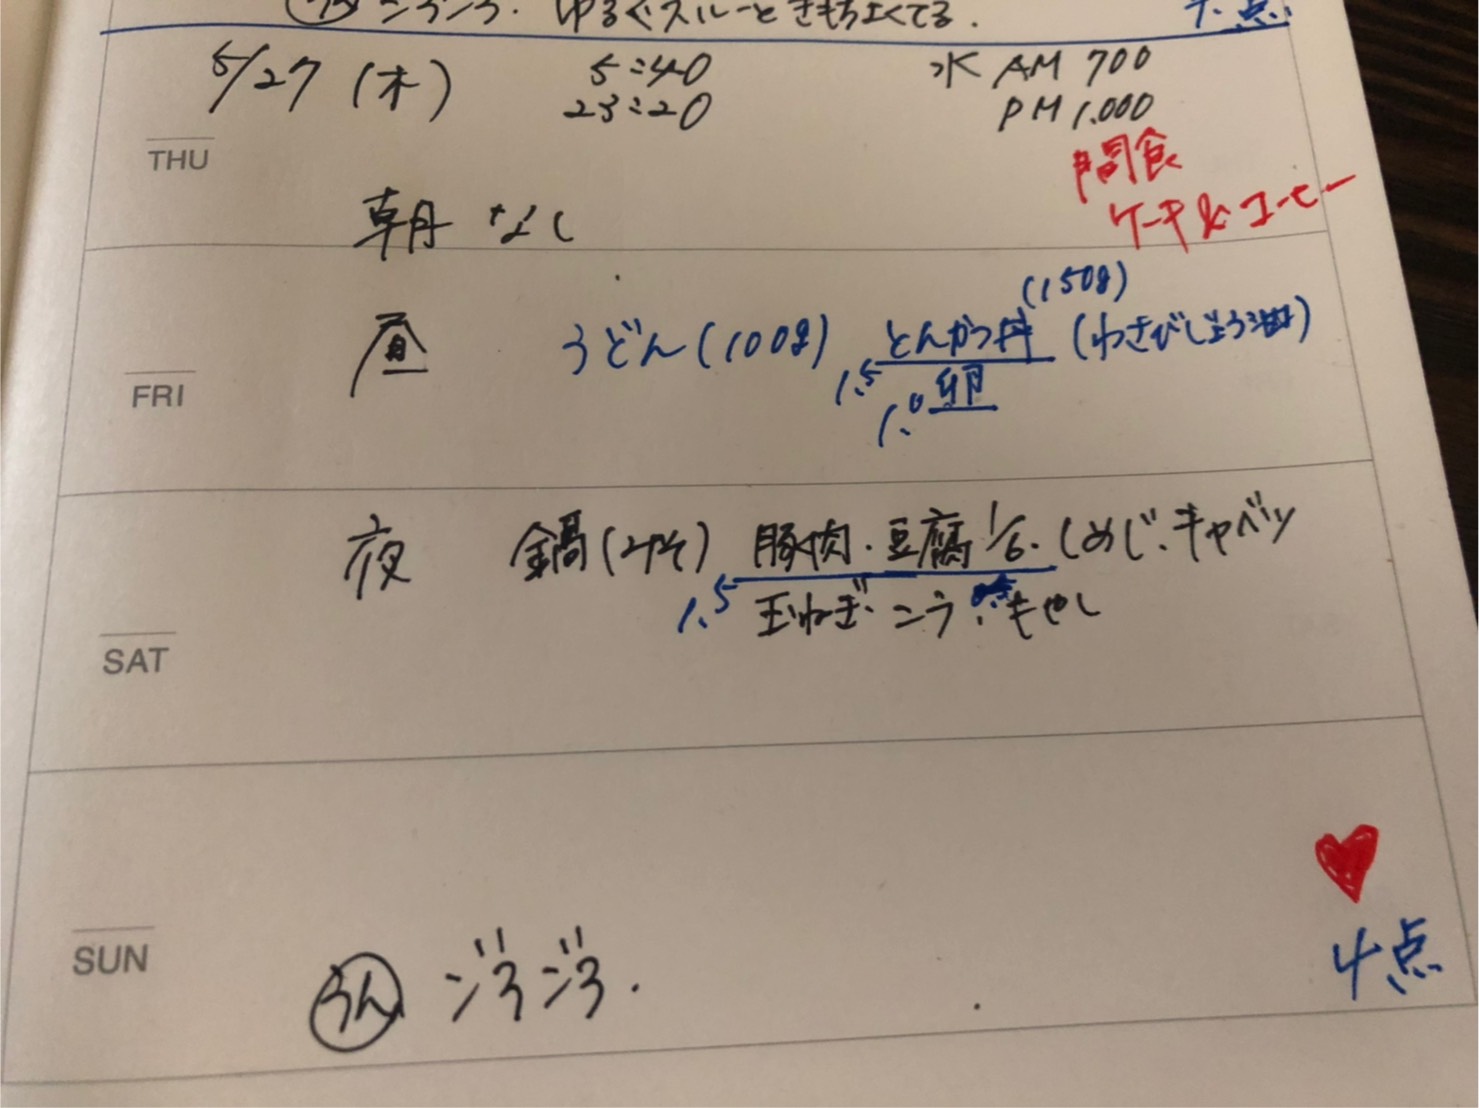 ゆるぐスルーときもちよくてる. 点
5/27 (木) 5:40 水 AM 700
23:20 PM 1.000
THU
間食
ケーキ&コーヒー
朝 なし
(150g)
昼 うどん(100g) 1.5 とんかつ丼 (わさびじょう油)
FRI
1.0 卵
夜 鍋(みそ) 豚肉・豆腐1/6・しめじ・キャベツ
1.5 玉ねぎ・こう・もやし
SAT
4点
SUN
うん ゴろゴろ.